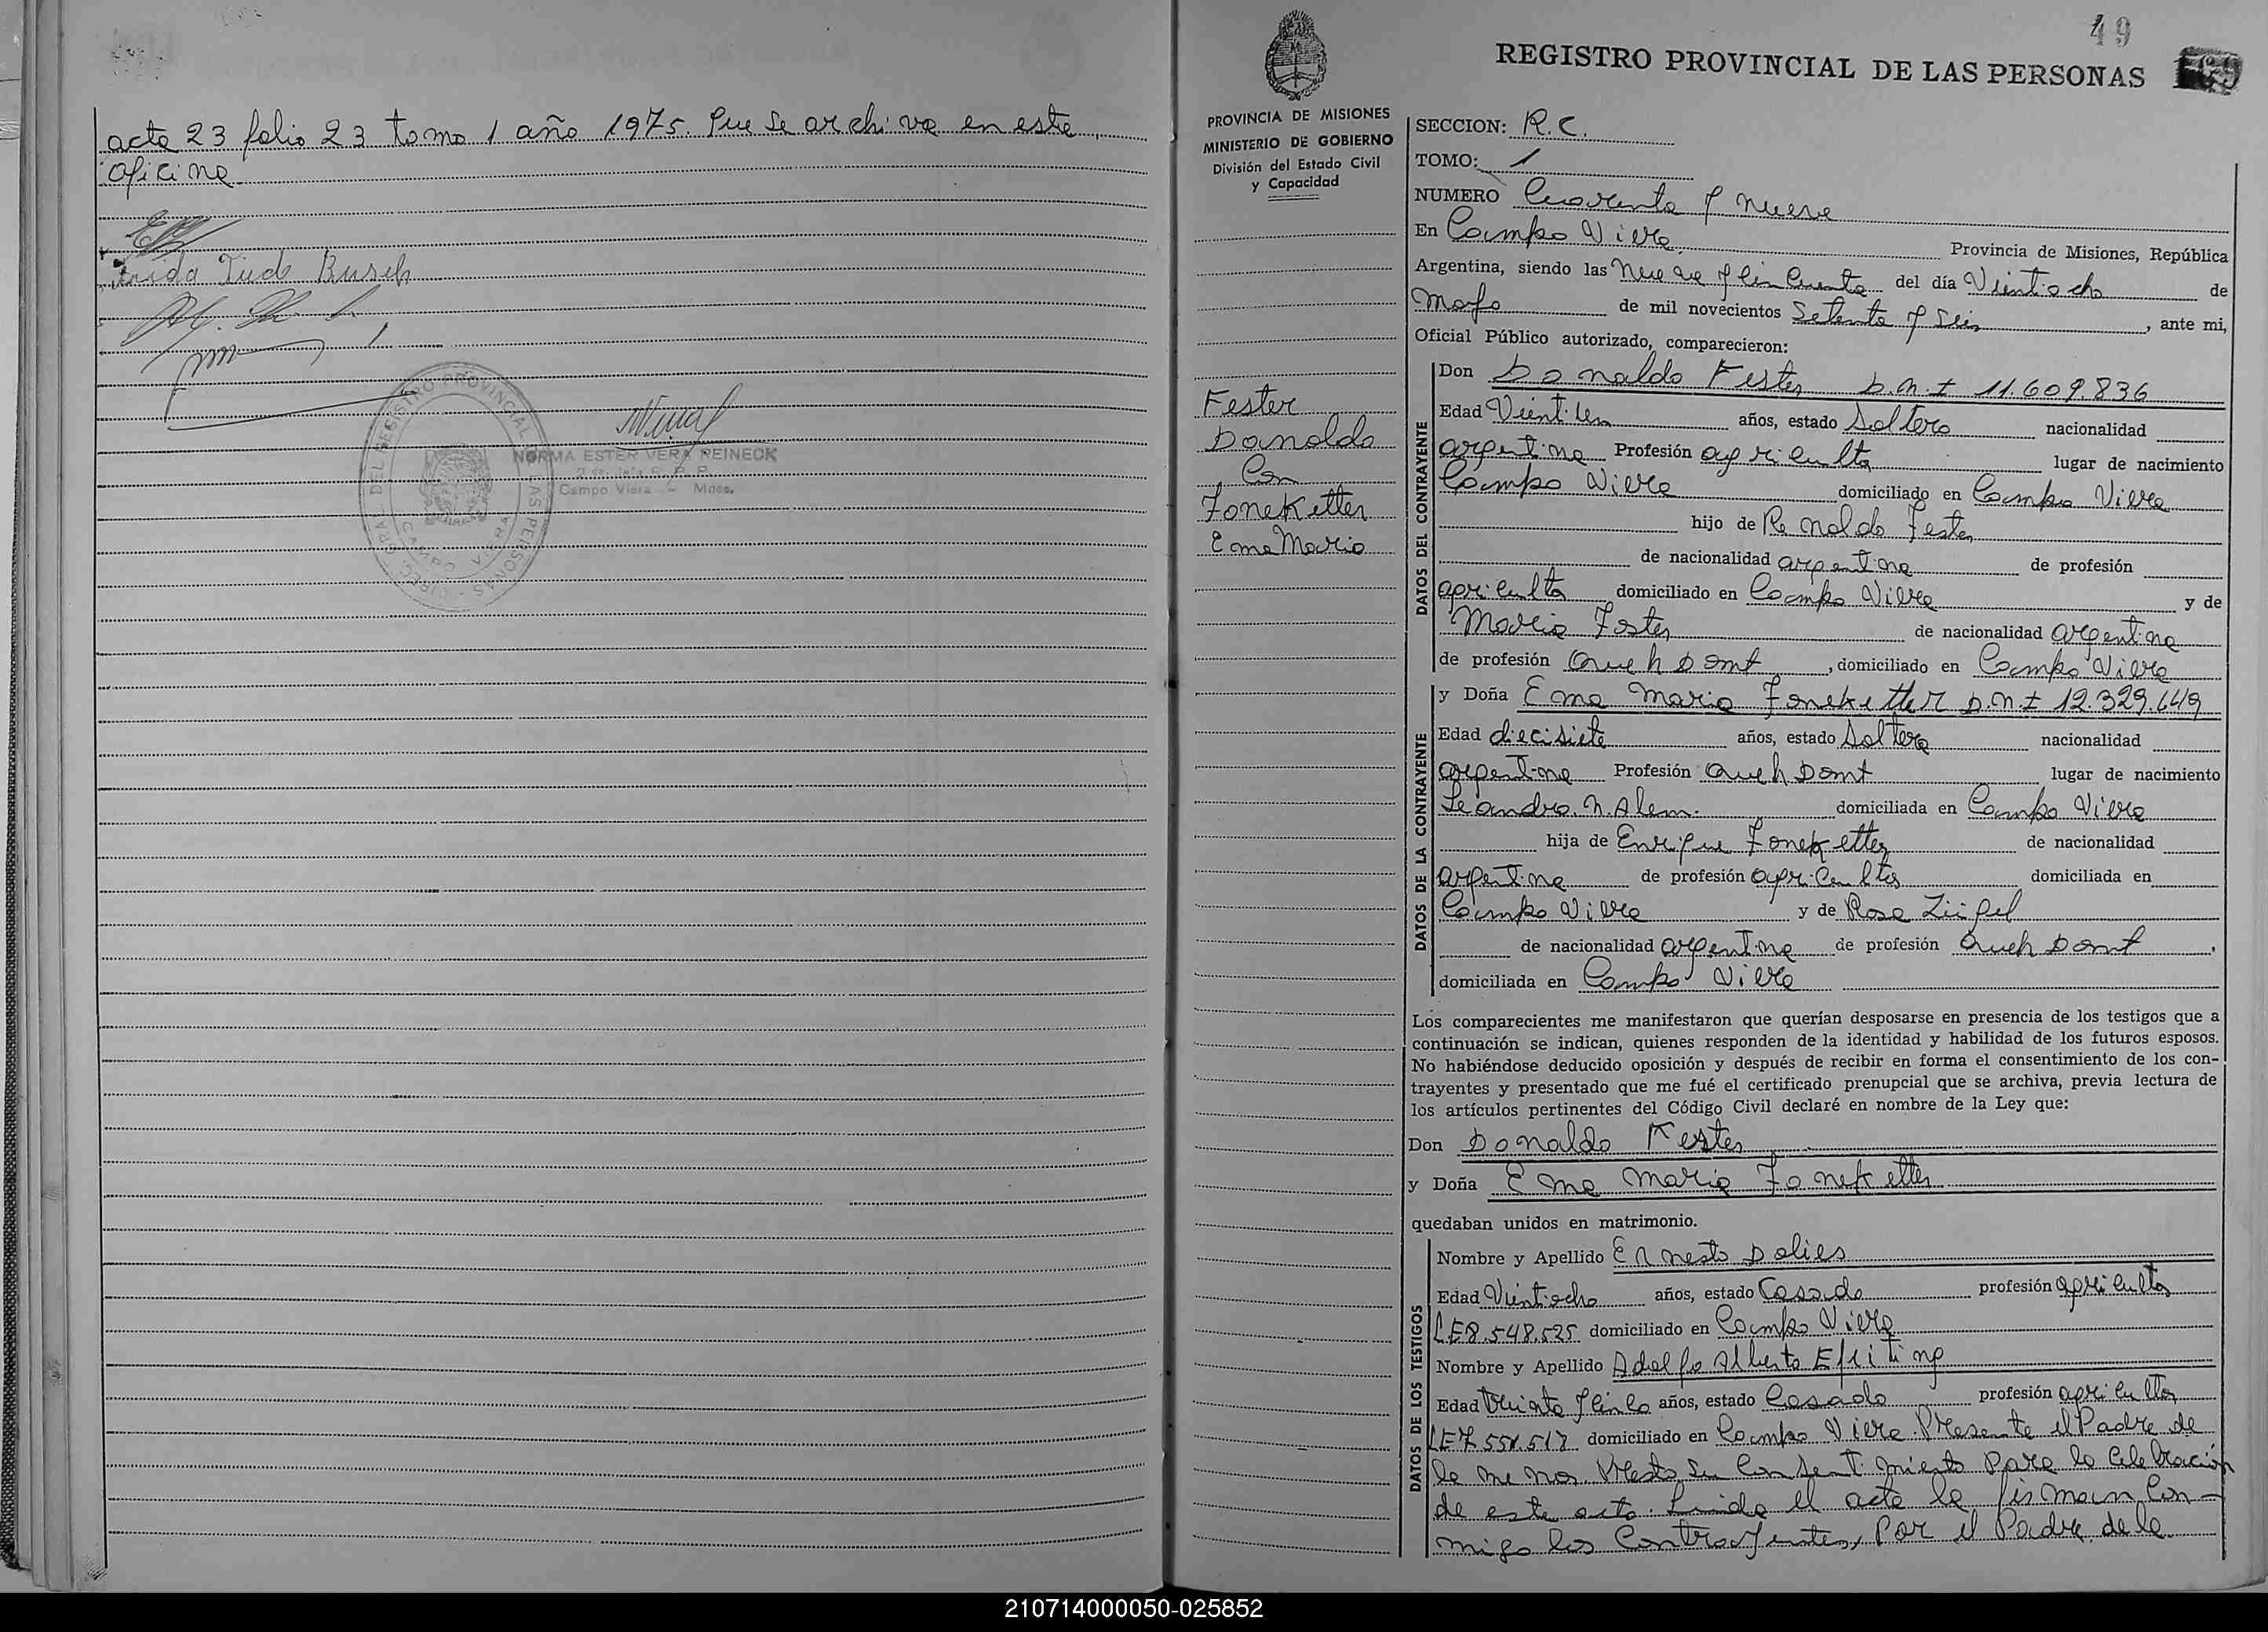 acta 23 folio 23 tomo 1 año 1975. Que se archiva en esta
oficina
Busch
DIREC. GRAL. DEL REGISTRO PROVINCIAL DE LAS PERSONAS
CAMPO VIERA
NORMA ESTER VERA REINECK
Campo Viera - Mnes.
49
REGISTRO PROVINCIAL DE LAS PERSONAS
PROVINCIA DE MISIONES
MINISTERIO DE GOBIERNO
División del Estado Civil
y Capacidad
Fester
Donaldo
Con
Foneketter
Ema Maria
SECCION: R.C.
TOMO: 1
NUMERO Cuarenta y nueve
En Campo Viera Provincia de Misiones, República
Argentina, siendo las nueve y cincuenta del día Vientiocho de
Mayo de mil novecientos Setenta y Seis, ante mi,
Oficial Público autorizado, comparecieron:
DATOS DEL CONTRAYENTE
Don Donaldo Fester D.N.I 11.609.836
Edad años, estado Soltero nacionalidad
argentina Profesión agricultor lugar de nacimiento
Campo Viera domiciliado en Campo Viera
hijo de Renaldo Fester
de nacionalidad argentina de profesión
agricultor domiciliado en Campo Viera y de
Maria Foster de nacionalidad argentina
de profesión Queh Domt, domiciliado en Campo Viera
DATOS DE LA CONTRAYENTE
y Doña Ema Maria Foneketter D.N.I 12.329.649
Edad diecisiete años, estado Soltera nacionalidad
argentina Profesión Queh Domt lugar de nacimiento
Leandro. N. Alem. domiciliada en Campo Viera
hija de Enrique Foneketter de nacionalidad
argentina de profesión agricultor domiciliada en
Campo Viera y de Rosa
de nacionalidad argentina de profesión Queh Domt,
domiciliada en Campo Viera
Los comparecientes me manifestaron que querían desposarse en presencia de los testigos que a
continuación se indican, quienes responden de la identidad y habilidad de los futuros esposos.
No habiéndose deducido oposición y después de recibir en forma el consentimiento de los con-
trayentes y presentado que me fué el certificado prenupcial que se archiva, previa lectura de
los artículos pertinentes del Código Civil declaré en nombre de la Ley que:
Don Donaldo Fester
y Doña Ema Maria Foneketter
quedaban unidos en matrimonio.
DATOS DE LOS TESTIGOS
Nombre y Apellido Ernesto Dalies
Edad Vientiocho años, estado Casado profesión agricultor
LE 8.548.525 domiciliado en Campo Viera
Nombre y Apellido Adolfo Alberto
Edad treinta y cinco años, estado Casado profesión agricultor
LE 7.551.517 domiciliado en Campo Viera. Presente el Padre de
la menor. Presto su consentimiento para la celebración
de este acto. Leida el acta la firman con-
migo los contrayentes, Por el Padre de la
210714000050-025852